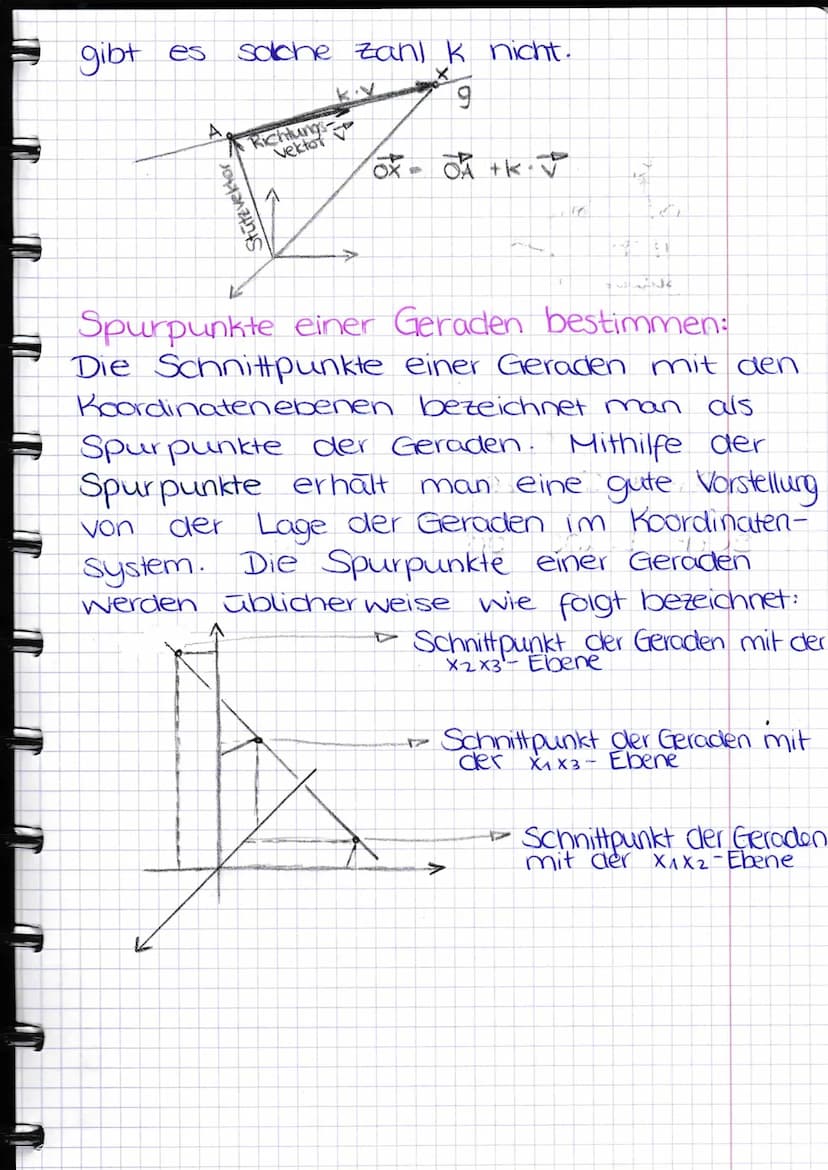 gibt es solche zahl k nicht.
X
k·v
g
A
Richtungs-
vektor v⃗
Stützvektor
OX⃗ = OA⃗ + k · v⃗
Spurpunkte einer Geraden bestimmen:
Die Schnittpunkte einer Geraden mit den
Koordinatenebenen bezeichnet man als
Spurpunkte der Geraden. Mithilfe der
Spurpunkte erhält man eine gute Vorstellung
von der Lage der Geraden im Koordinaten-
system. Die Spurpunkte einer Geraden
werden üblicherweise wie folgt bezeichnet:
Schnittpunkt der Geraden mit der
x2x3 - Ebene
Schnittpunkt der Geraden mit
der x1x3 - Ebene
Schnittpunkt der Geraden
mit der x1x2 - Ebene